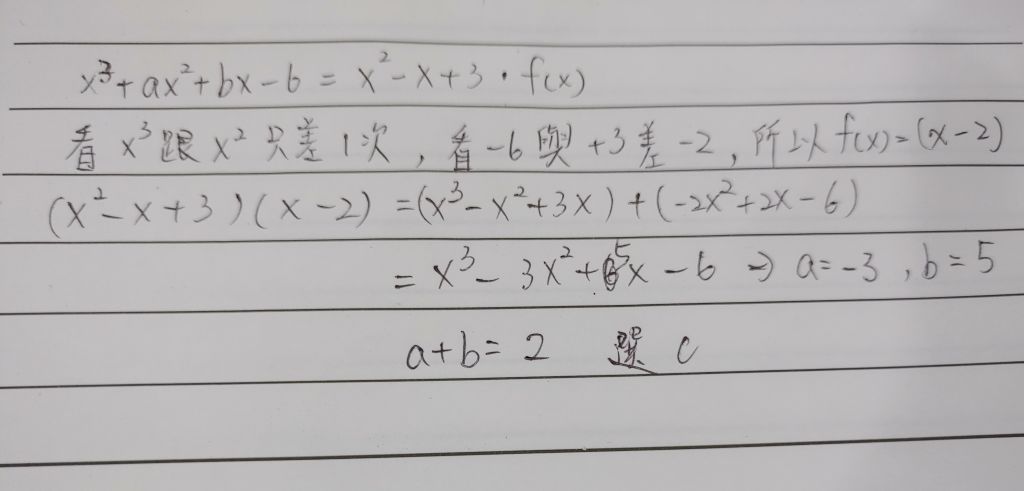 x³+ax²+bx-6 = x²-x+3·f(x)
看 x³ 跟 x² 只差1次，看-6與+3差-2，所以 f(x)=(x-2)
(x²-x+3)(x-2) =(x³-x²+3x)+(-2x²+2x-6)
= x³-3x²+5x-6 ⇒ a=-3，b=5
a+b=2 選 C